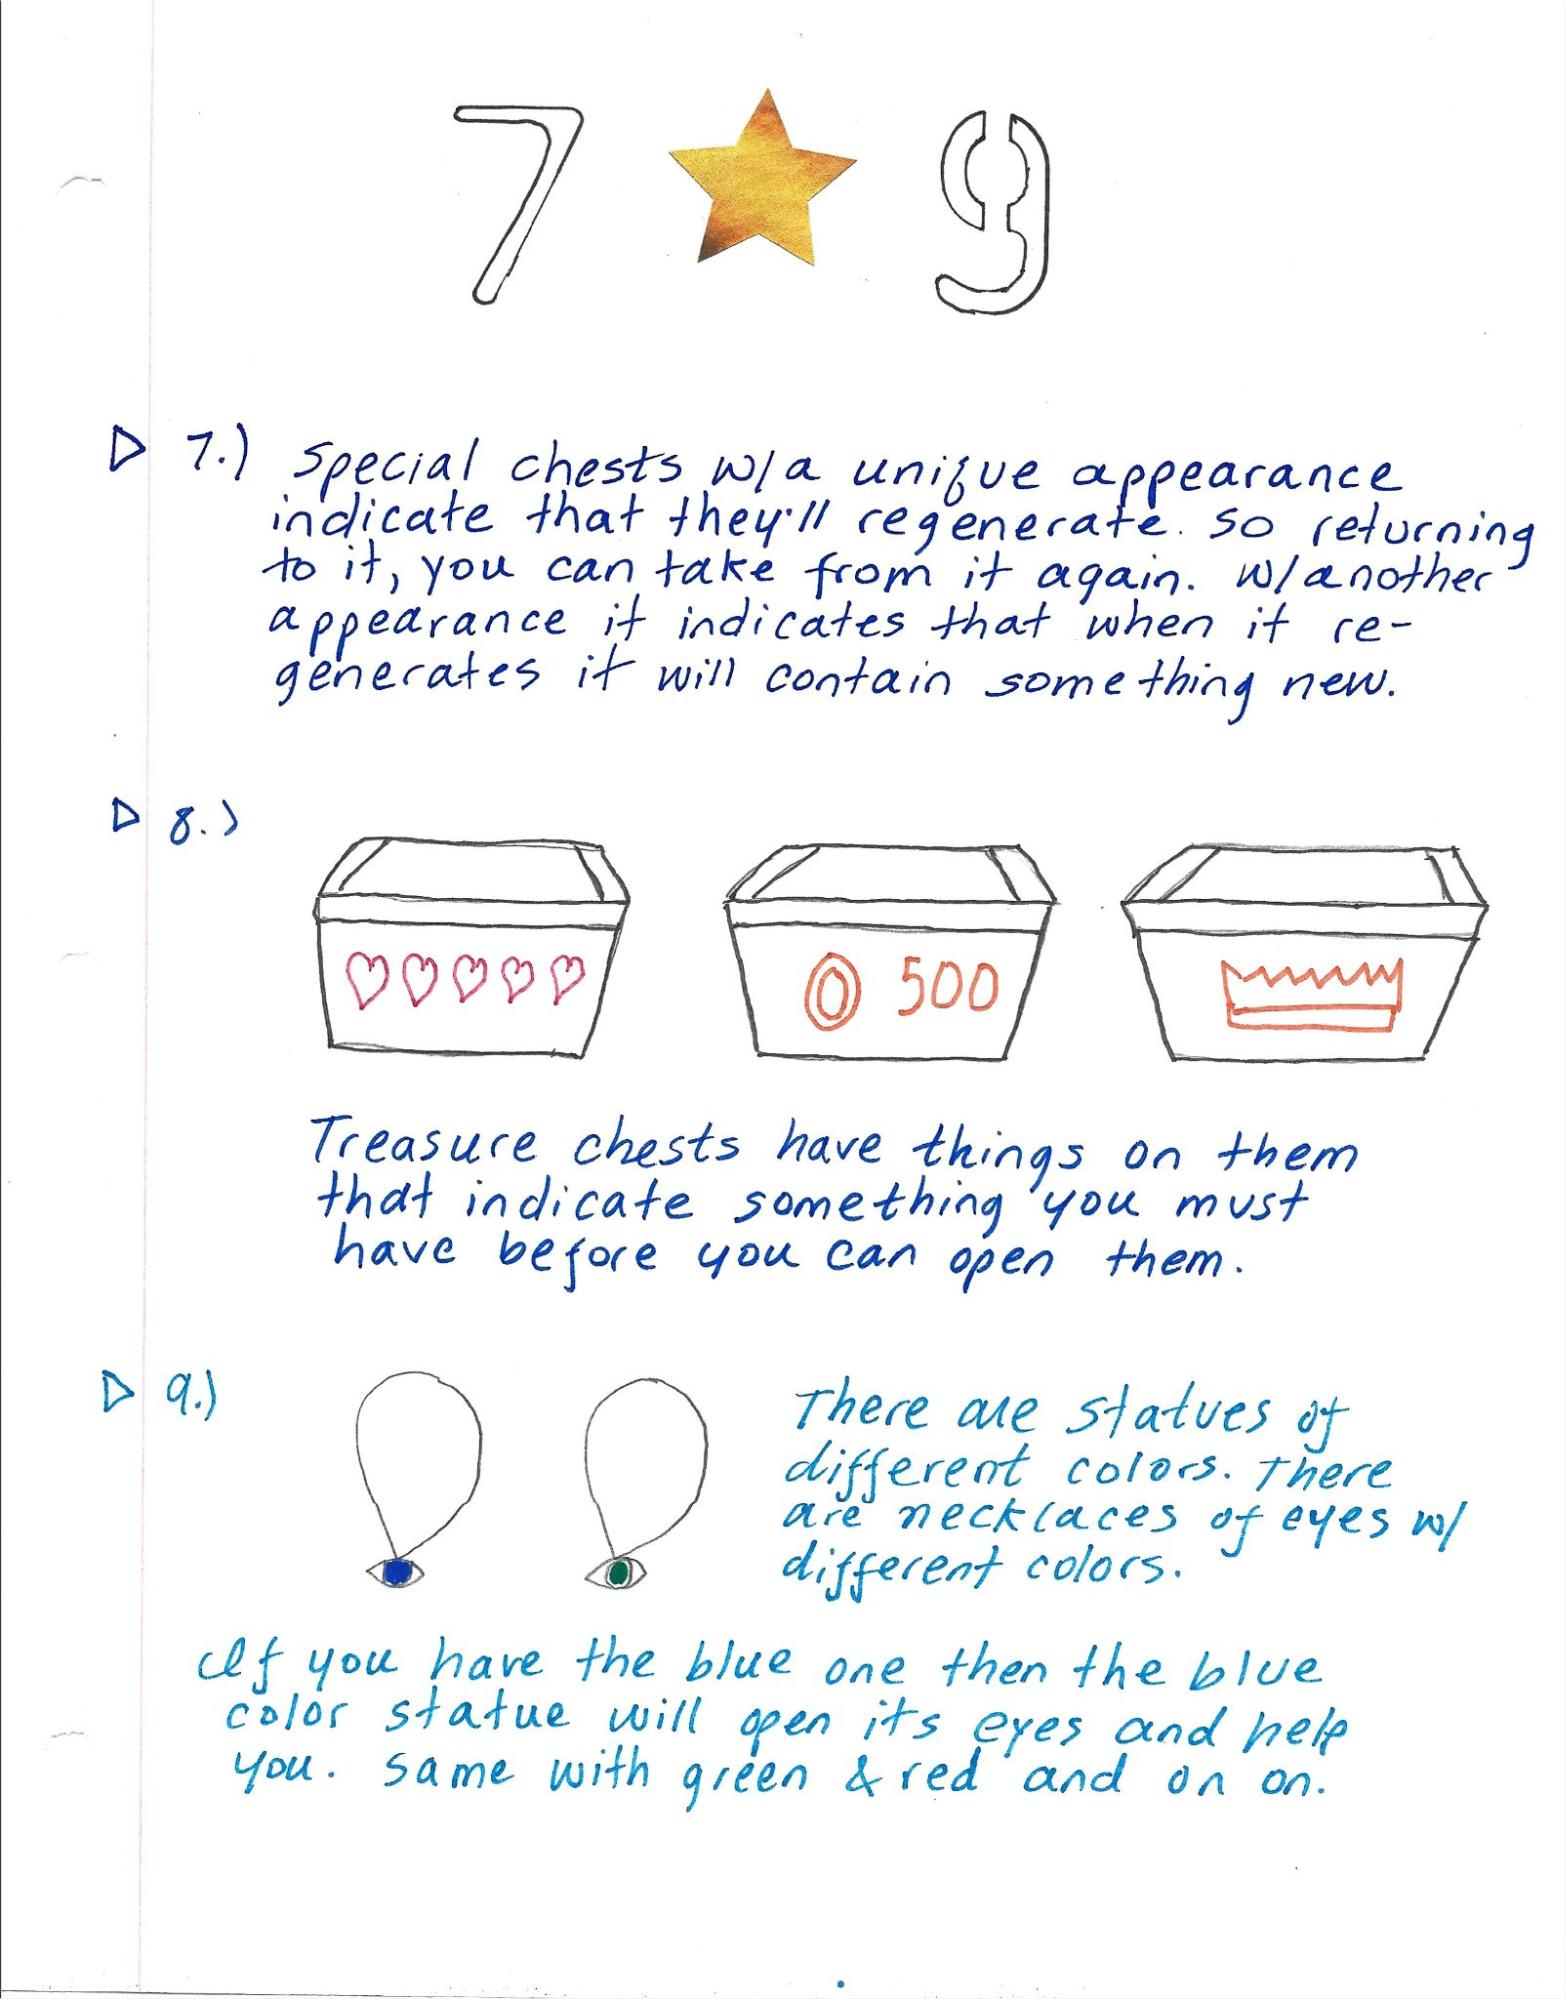 7 9
7.) Special chests w/a unique appearance
indicate that they'll regenerate. So returning
to it, you can take from it again. w/another
appearance it indicates that when it re-
generates it will contain something new.
8.)
500
Treasure chests have things on them
that indicate something you must
have before you can open them.
9.)
There are statues of
different colors. There
are necklaces of eyes w/
different colors.
If you have the blue one then the blue
color statue will open its eyes and help
you. Same with green & red and on on.